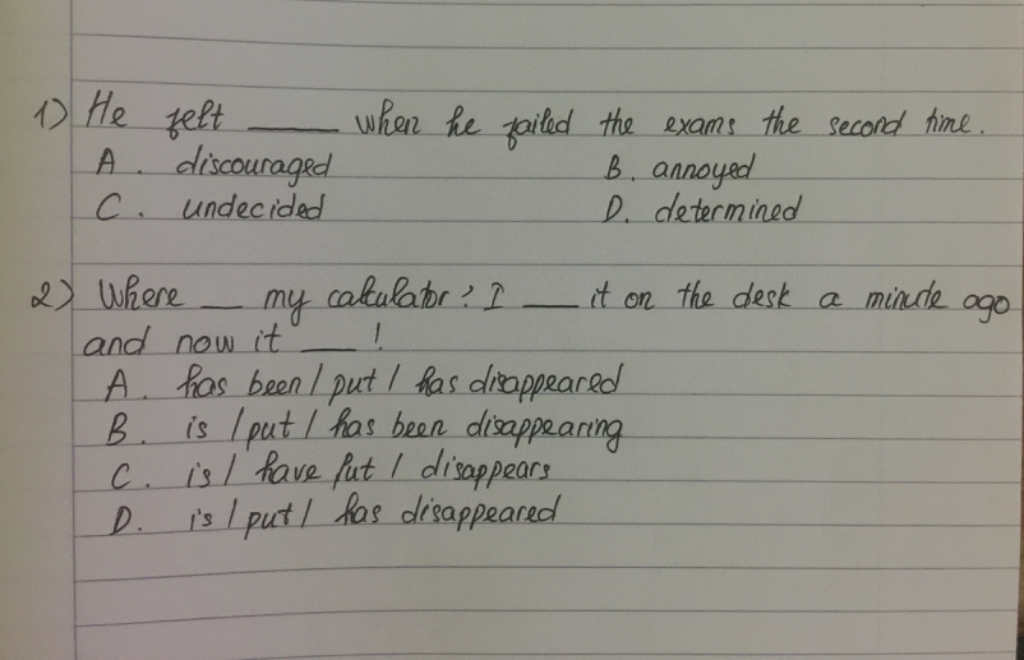 1) He felt ____ when he failed the exams the second time.
A. discouraged B. annoyed
C. undecided D. determined
2) Where __ my calculator? I __ it on the desk a minute ago
and now it __ !
A. has been / put / has disappeared
B. is / put / has been disappearing
C. is / have put / disappears
D. is / put / has disappeared